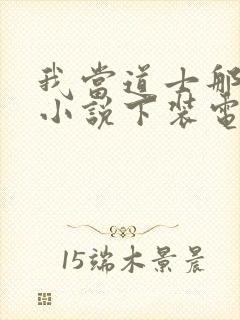 我當道士那
小說下裝電
15端木景晨